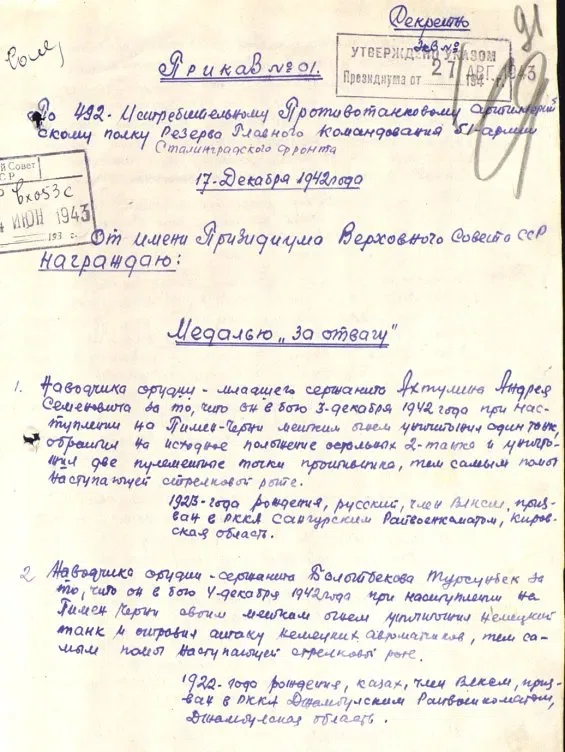 Секретно
Экз №
91
УТВЕРЖДЕНО УКАЗОМ
Президиума от 27 АВГ. 1943
Приказ № 01.
По 492-Истребительному Противотанковому артиллерий-
скому полку Резерва Главного командования 51-армии
Сталинградского фронта
17-Декабря 1942 года
й Совет
СР
вх053с
ИЮН 1943
193 г.
От имени Призидиума Верховного Совета СССР
награждаю:
Медалью „За отвагу"
1. Наводчика орудии - младшего сержанта Ахтулина Андрея
Семеновича за то, что он в бою 3-декабря 1942 года при нас-
туплении на Гимен-Черни метким огнем уничтожил один танк,
обратил на исходное положение остальных 2-танка и уничто-
жил две пулеметные точки противника, тем самым помог
наступающей стрелковой роте.
1923-года рождения, русский, член ВЛКСМ, приз-
ван в РККА Сангурским Райвоенкоматом, Киров-
ская область.
2 Наводчика орудии - сержанта Турсунбек за
то, что он в бою 4-декабря 1942 года при наступлении на
Гимен Черни своим метким огнем уничтожил немецкий
танк и отразил атаку немецких автоматчиков, тем са-
мым помог наступающей стрелковой роте.
1922-года рождения, казах, член ВЛКСМ, приз-
ван в РККА Джамбулским Райвоенкоматом,
Джамбулская область.